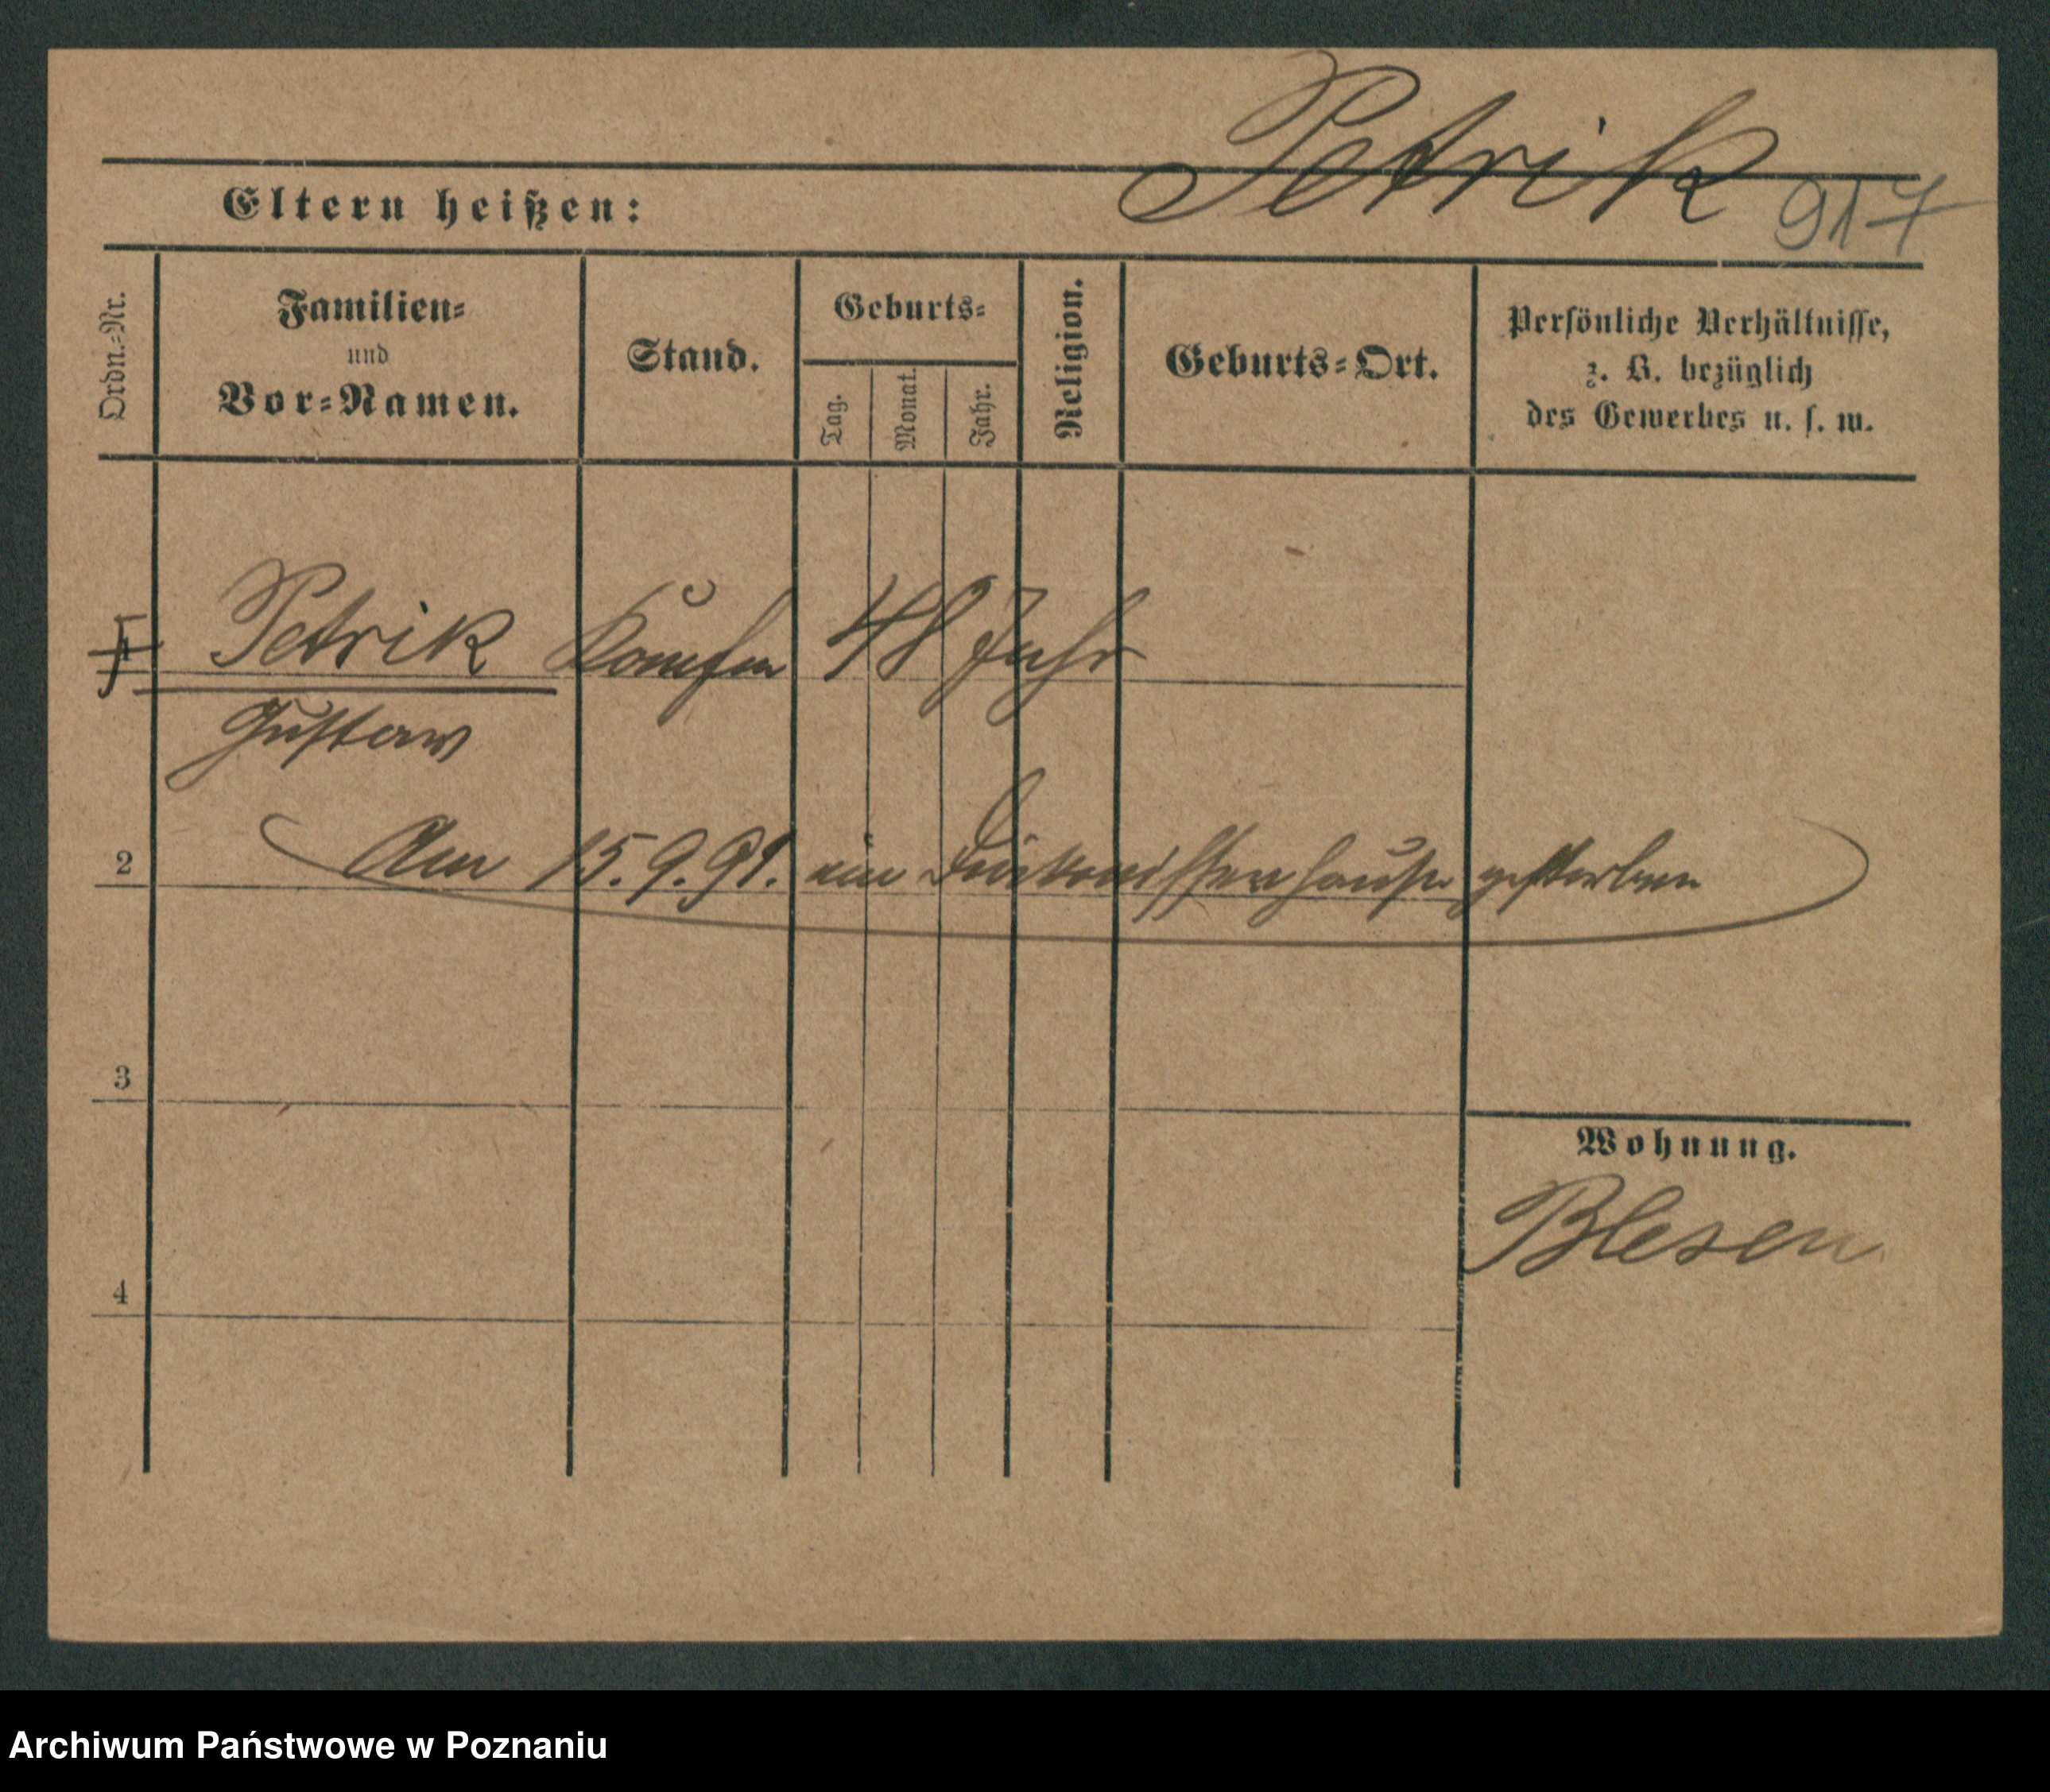 Petrik
917
Eltern heißen:
Ordn.-Nr.
Familien-
und
Vor-Namen.
Stand.
Geburts-
Tag.
Monat.
Jahr.
Religion.
Geburts-Ort.
Persönliche Verhältnisse,
z. B. bezüglich
des Gewerbes u. s. w.
1 Petrik Kaufm 48 Jahr
Gustav
2 Am 15.9.91. im Diakonissenhause gestorben
3
Wohnung.
Blesen
4
Archiwum Państwowe w Poznaniu